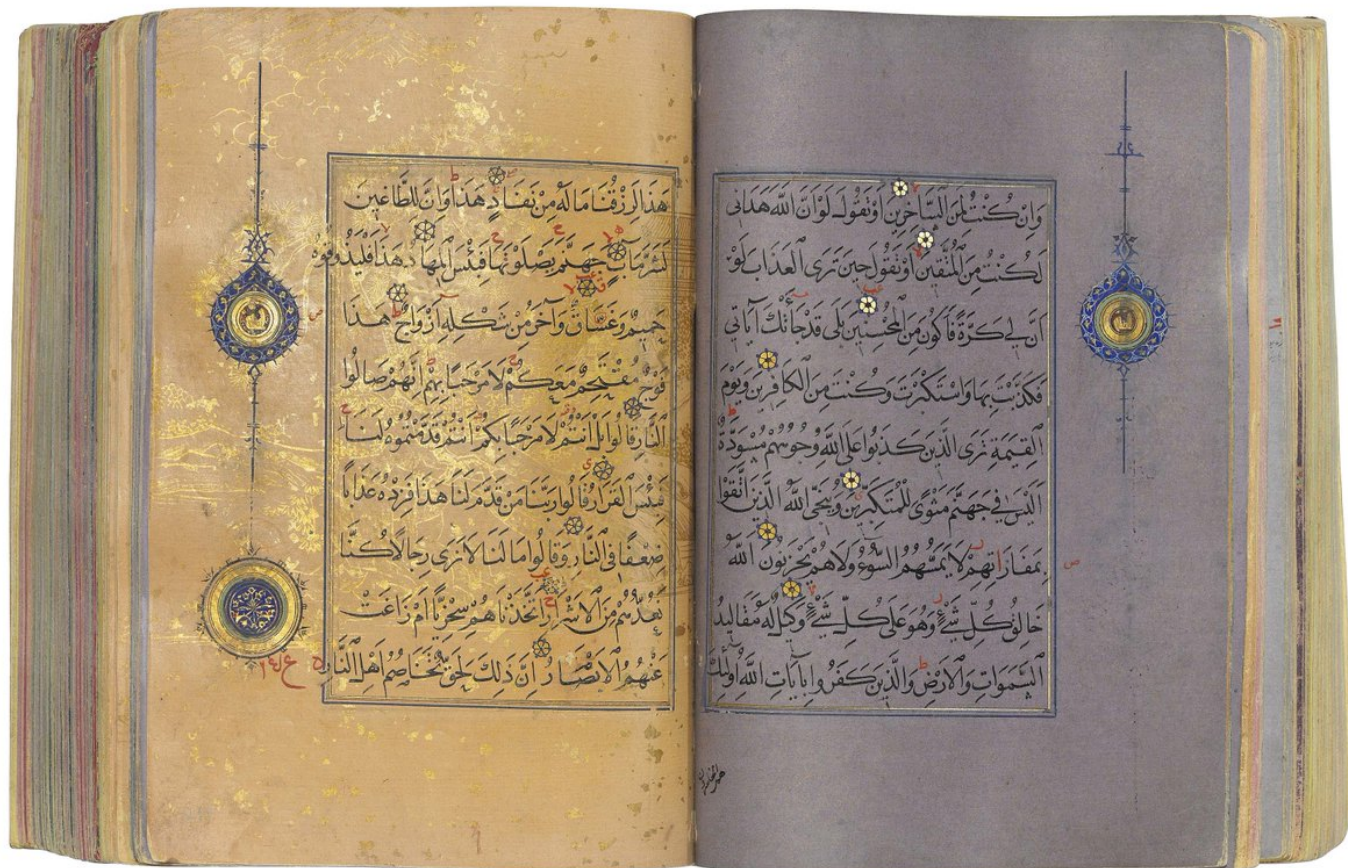 وَاِنْ كُنْتُ لَمِنَ السَّاخِرِينَ اَوْ تَقُولَ لَوْ اَنَّ اللّٰهَ هَدَانِى
لَكُنْتُ مِنَ الْمُتَّقِينَ اَوْ تَقُولَ حِينَ تَرَى الْعَذَابَ لَوْ
اَنَّ لِى كَرَّةً فَاَكُونَ مِنَ الْمُحْسِنِينَ بَلَى قَدْ جَاءَتْكَ آيَاتِى
فَكَذَّبْتَ بِهَا وَاسْتَكْبَرْتَ وَكُنْتَ مِنَ الْكَافِرِينَ وَيَوْمَ
الْقِيٰمَةِ تَرَى الَّذِينَ كَذَبُوا عَلَى اللّٰهِ وُجُوهُهُمْ مُسْوَدَّةٌ
اَلَيْسَ فِى جَهَنَّمَ مَثْوًى لِلْمُتَكَبِّرِينَ وَيُنَجِّى اللّٰهُ الَّذِينَ اتَّقَوْا
بِمَفَازَاتِهِمْ لَا يَمَسُّهُمُ السُّوءُ وَلَا هُمْ يَحْزَنُونَ اَللّٰهُ
خَالِقُ كُلِّ شَىْءٍ وَهُوَ عَلَى كُلِّ شَىْءٍ وَكِيلٌ لَهُ مَقَالِيدُ
السَّمٰوَاتِ وَالْاَرْضِ وَالَّذِينَ كَفَرُوا بِآيَاتِ اللّٰهِ اُولٰئِكَ
هَذَا لَرِزْقُنَا مَا لَهُ مِنْ نَفَادٍ هَذَا وَاِنَّ لِلطَّاغِينَ
لَشَرَّ مَآبٍ جَهَنَّمَ يَصْلَوْنَهَا فَبِئْسَ الْمِهَادُ هَذَا فَلْيَذُوقُوهُ
حَمِيمٌ وَغَسَّاقٌ وَآخَرُ مِنْ شَكْلِهِ اَزْوَاجٌ هَذَا
فَوْجٌ مُقْتَحِمٌ مَعَكُمْ لَا مَرْحَبًا بِهِمْ اِنَّهُمْ صَالُوا
النَّارِ قَالُوا بَلْ اَنْتُمْ لَا مَرْحَبًا بِكُمْ اَنْتُمْ قَدَّمْتُمُوهُ لَنَا
فَبِئْسَ الْقَرَارُ قَالُوا رَبَّنَا مَنْ قَدَّمَ لَنَا هَذَا فَزِدْهُ عَذَابًا
ضِعْفًا فِى النَّارِ وَقَالُوا مَا لَنَا لَا نَرَى رِجَالًا كُنَّا
نَعُدُّهُمْ مِنَ الْاَشْرَارِ اَتَّخَذْنَاهُمْ سِخْرِيًّا اَمْ زَاغَتْ
عَنْهُمُ الْاَبْصَارُ اِنَّ ذَلِكَ لَحَقٌّ تَخَاصُمُ اَهْلِ النَّارِ